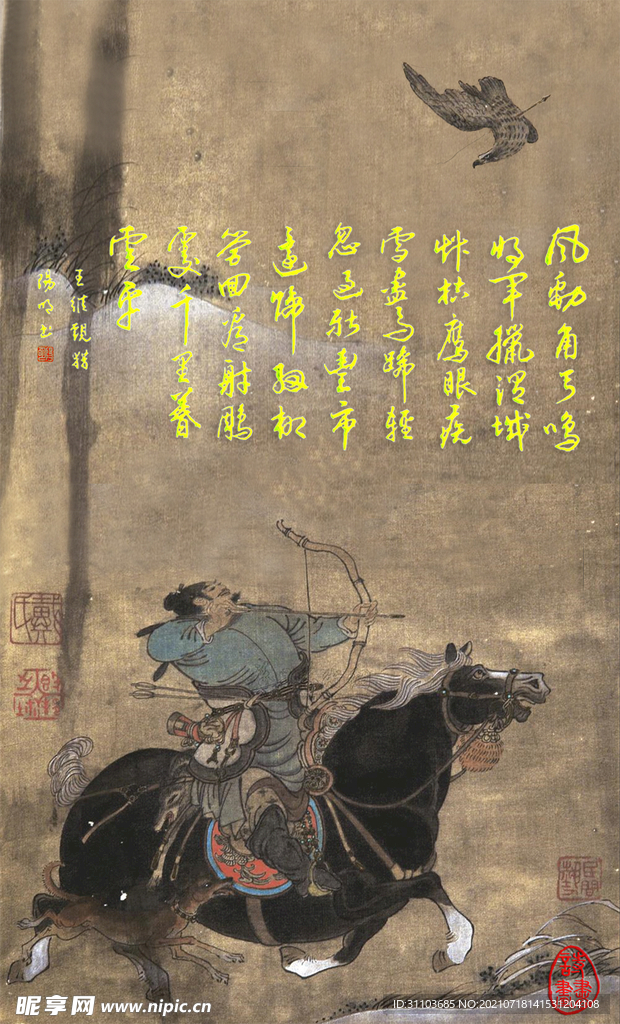 風勁角弓鳴
將軍獵渭城
艸枯鷹眼疾
雪盡馬蹄輕
忽過新豐市
還歸細柳
營回看射鵰
處千里暮
雲平
王維觀獵
陽明書
昵享网 www.nipic.cn
ID:31103685 NO:20210718141531204108